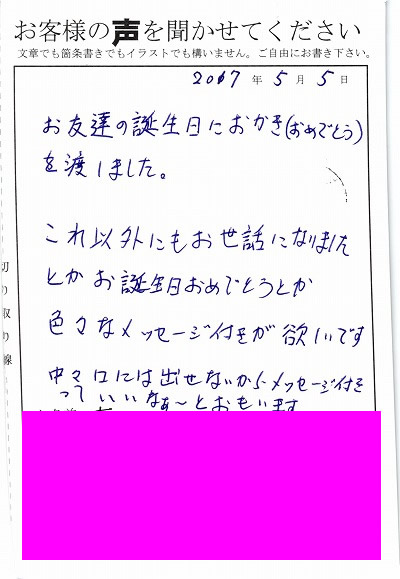 お客様の声を聞かせてください
文章でも箇条書きでもイラストでも構いません。ご自由にお書き下さい。
2017年5月5日
お友達の誕生日におかき(おめでとう)
を渡しました。
これ以外にもお世話になりました
とかお誕生日おめでとうとか
色々なメッセージ付きが欲しいです
中々口には出せないからメッセージ付き
っていいなぁ〜とおもいます
切り取り線